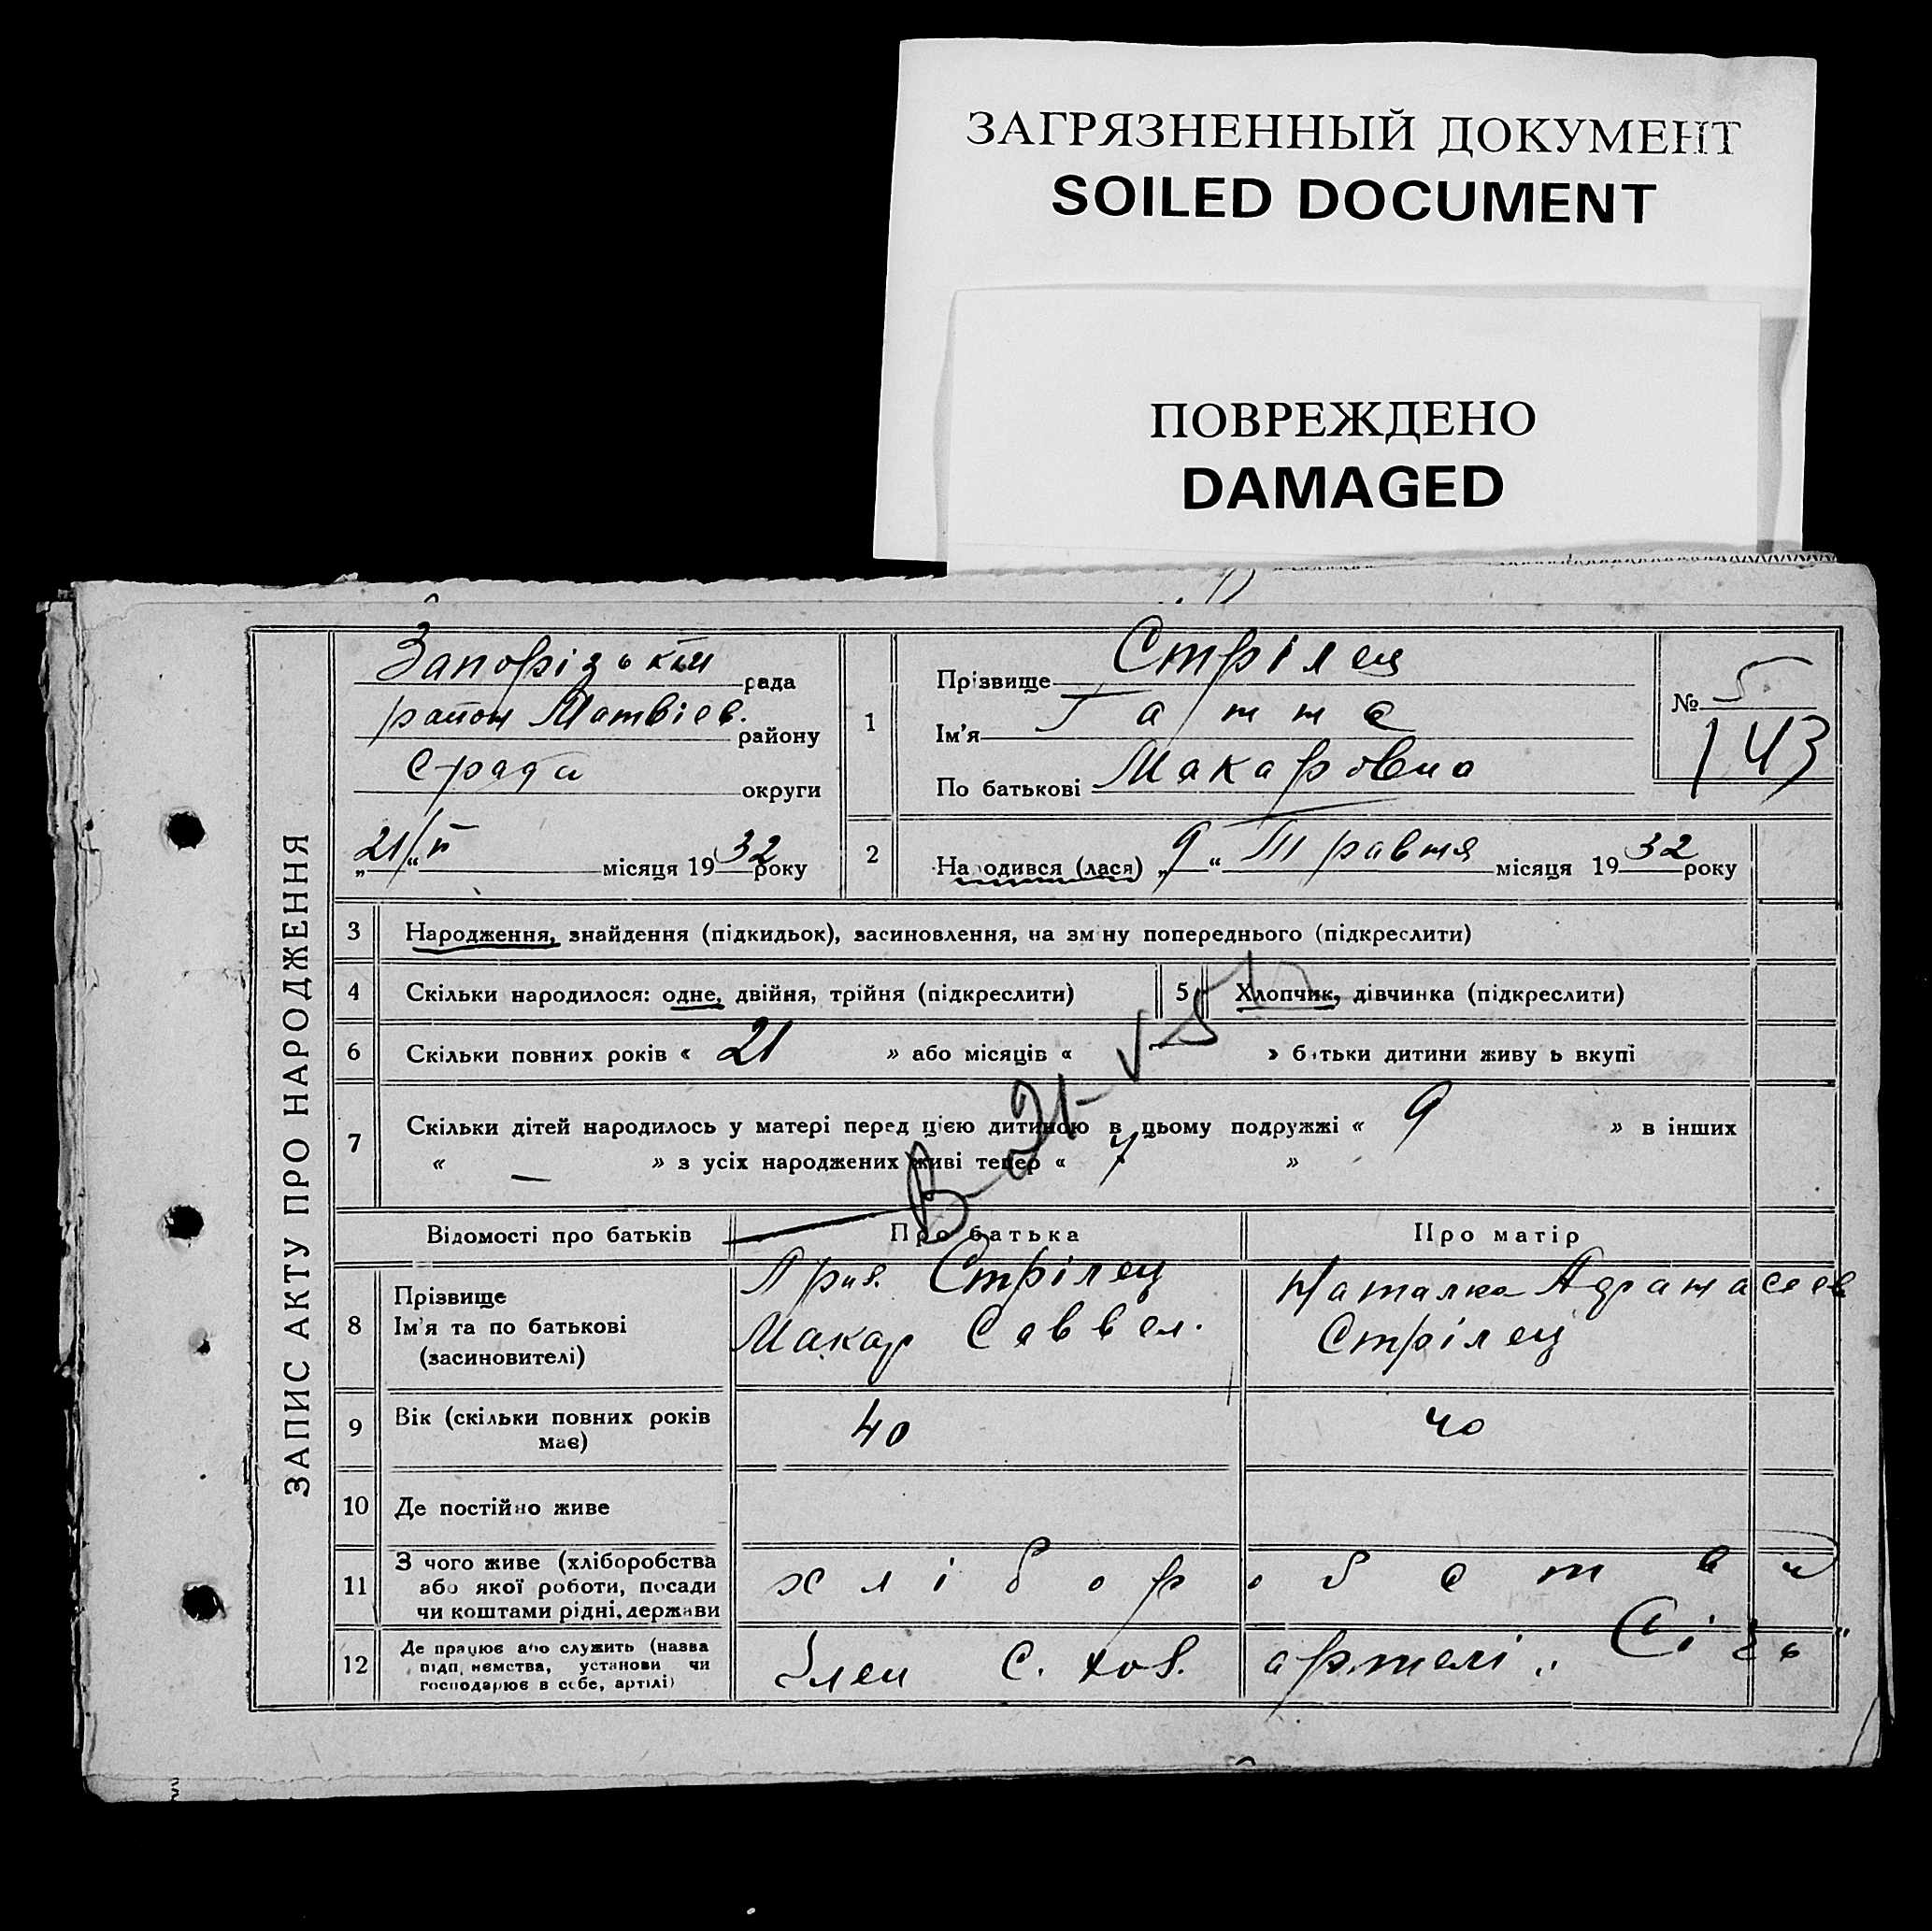 ЗАГРЯЗНЕННЫЙ ДОКУМЕНТ
SOILED DOCUMENT
ПОВРЕЖДЕНО
DAMAGED
ЗАПИС АКТУ ПРО НАРОДЖЕННЯ
Запорізький рада
район Матвіев. району
с/рада округи
„21/“ місяця 1932 року
1
Прізвище Стрілец
Ім'я Ганна
По батькові Макаровна
№ 5
143
2 Народився (лася) „9“ Травня місяця 1932 року
3 Народження, знайдення (підкидьок), засиновлення, на зміну попереднього (підкреслити)
4 Скільки народилося: одне, двійня, трійня (підкреслити)
5 Хлопчик, дівчинка (підкреслити)
6 Скільки повних років « 21 » або місяців « » батьки дитини живуть вкупі
7 Скільки дітей народилось у матері перед цією дитиною в цьому подружжі « 9 » в інших
« — » з усіх народжених живі тепер « 7 »
Відомості про батьків
Про батька
Про матір
8 Прізвище
Ім'я та по батькові
(засиновителі)
Стрілец
Макар Саввел.
Наталка
Стрілец
9 Вік (скільки повних років
має)
40
40
10 Де постійно живе
11 З чого живе (хліборобства
або якої роботи, посади
чи коштами рідні, держави
хліборобства
12 Де працює або служить (назва
підпиємства, установи чи
господарює в себе, артілі)
Член с. гос. артелі „Сізь“